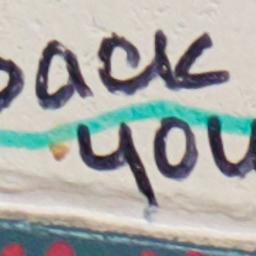 back
you